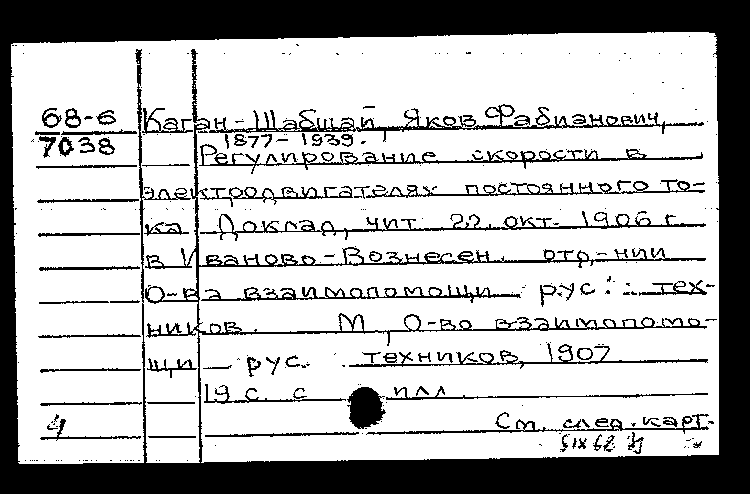 68-6 Каган-Шабшай, Яков Фабианович,
7038 1877-1939.
Регулирование скорости в
электродвигателях постоянного то-
ка Доклад, чит 22. окт. 1906 г.
в Иваново-Вознесен. отд-нии
О-ва взаимопомощи рус. тех-
ников. М, О-во взаимопомо-
щи рус. техников, 1907
19 с. с илл.
4 См. след. карт.